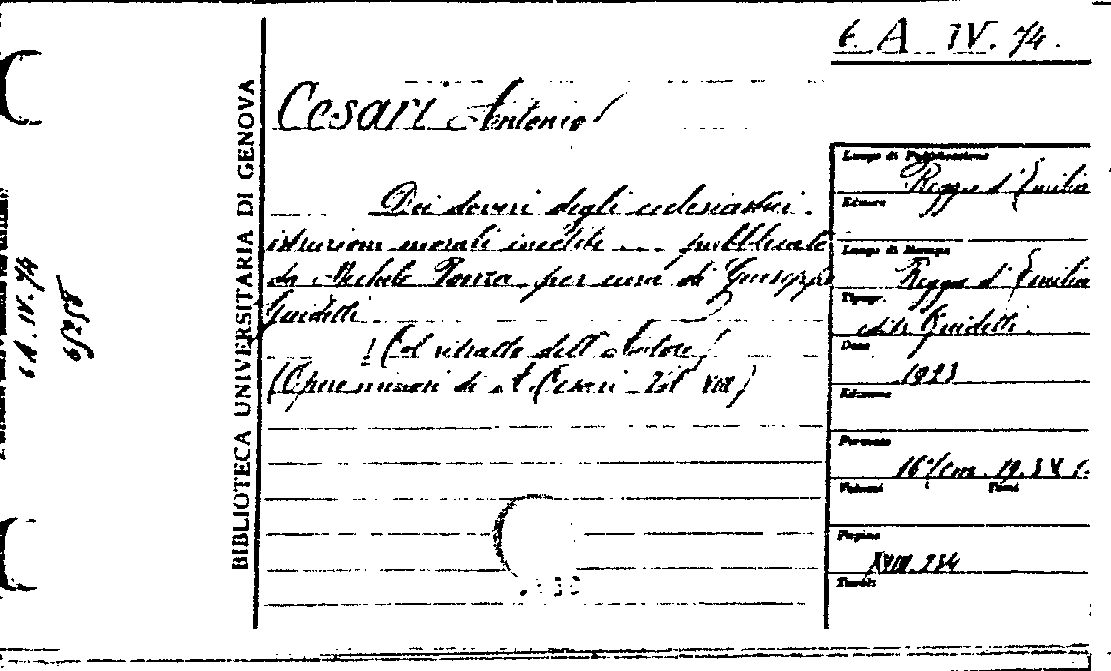 6. A IV. 74.
Cesari Antonio
Dei doveri degli ecclesiastici.
istruzioni morali inedite ... pubblicate
da Michele Ponza per cura di Giuseppe
Guidetti
(Col ritratto dell'Autore)
(Opere minori di A. Cesari - Vol VIII)
BIBLIOTECA UNIVERSITARIA DI GENOVA
6 A. IV. 74
Luogo di Pubblicazione
Reggio d'Emilia
Editore
Luogo di Stampa
Reggio d'Emilia
Tipogr.
edit. Guidetti.
Data
1923
Edizione
Formato
16°/cm. 19.5 X
Volumi Tomi
Pagine
XVIII. 234
Tavole